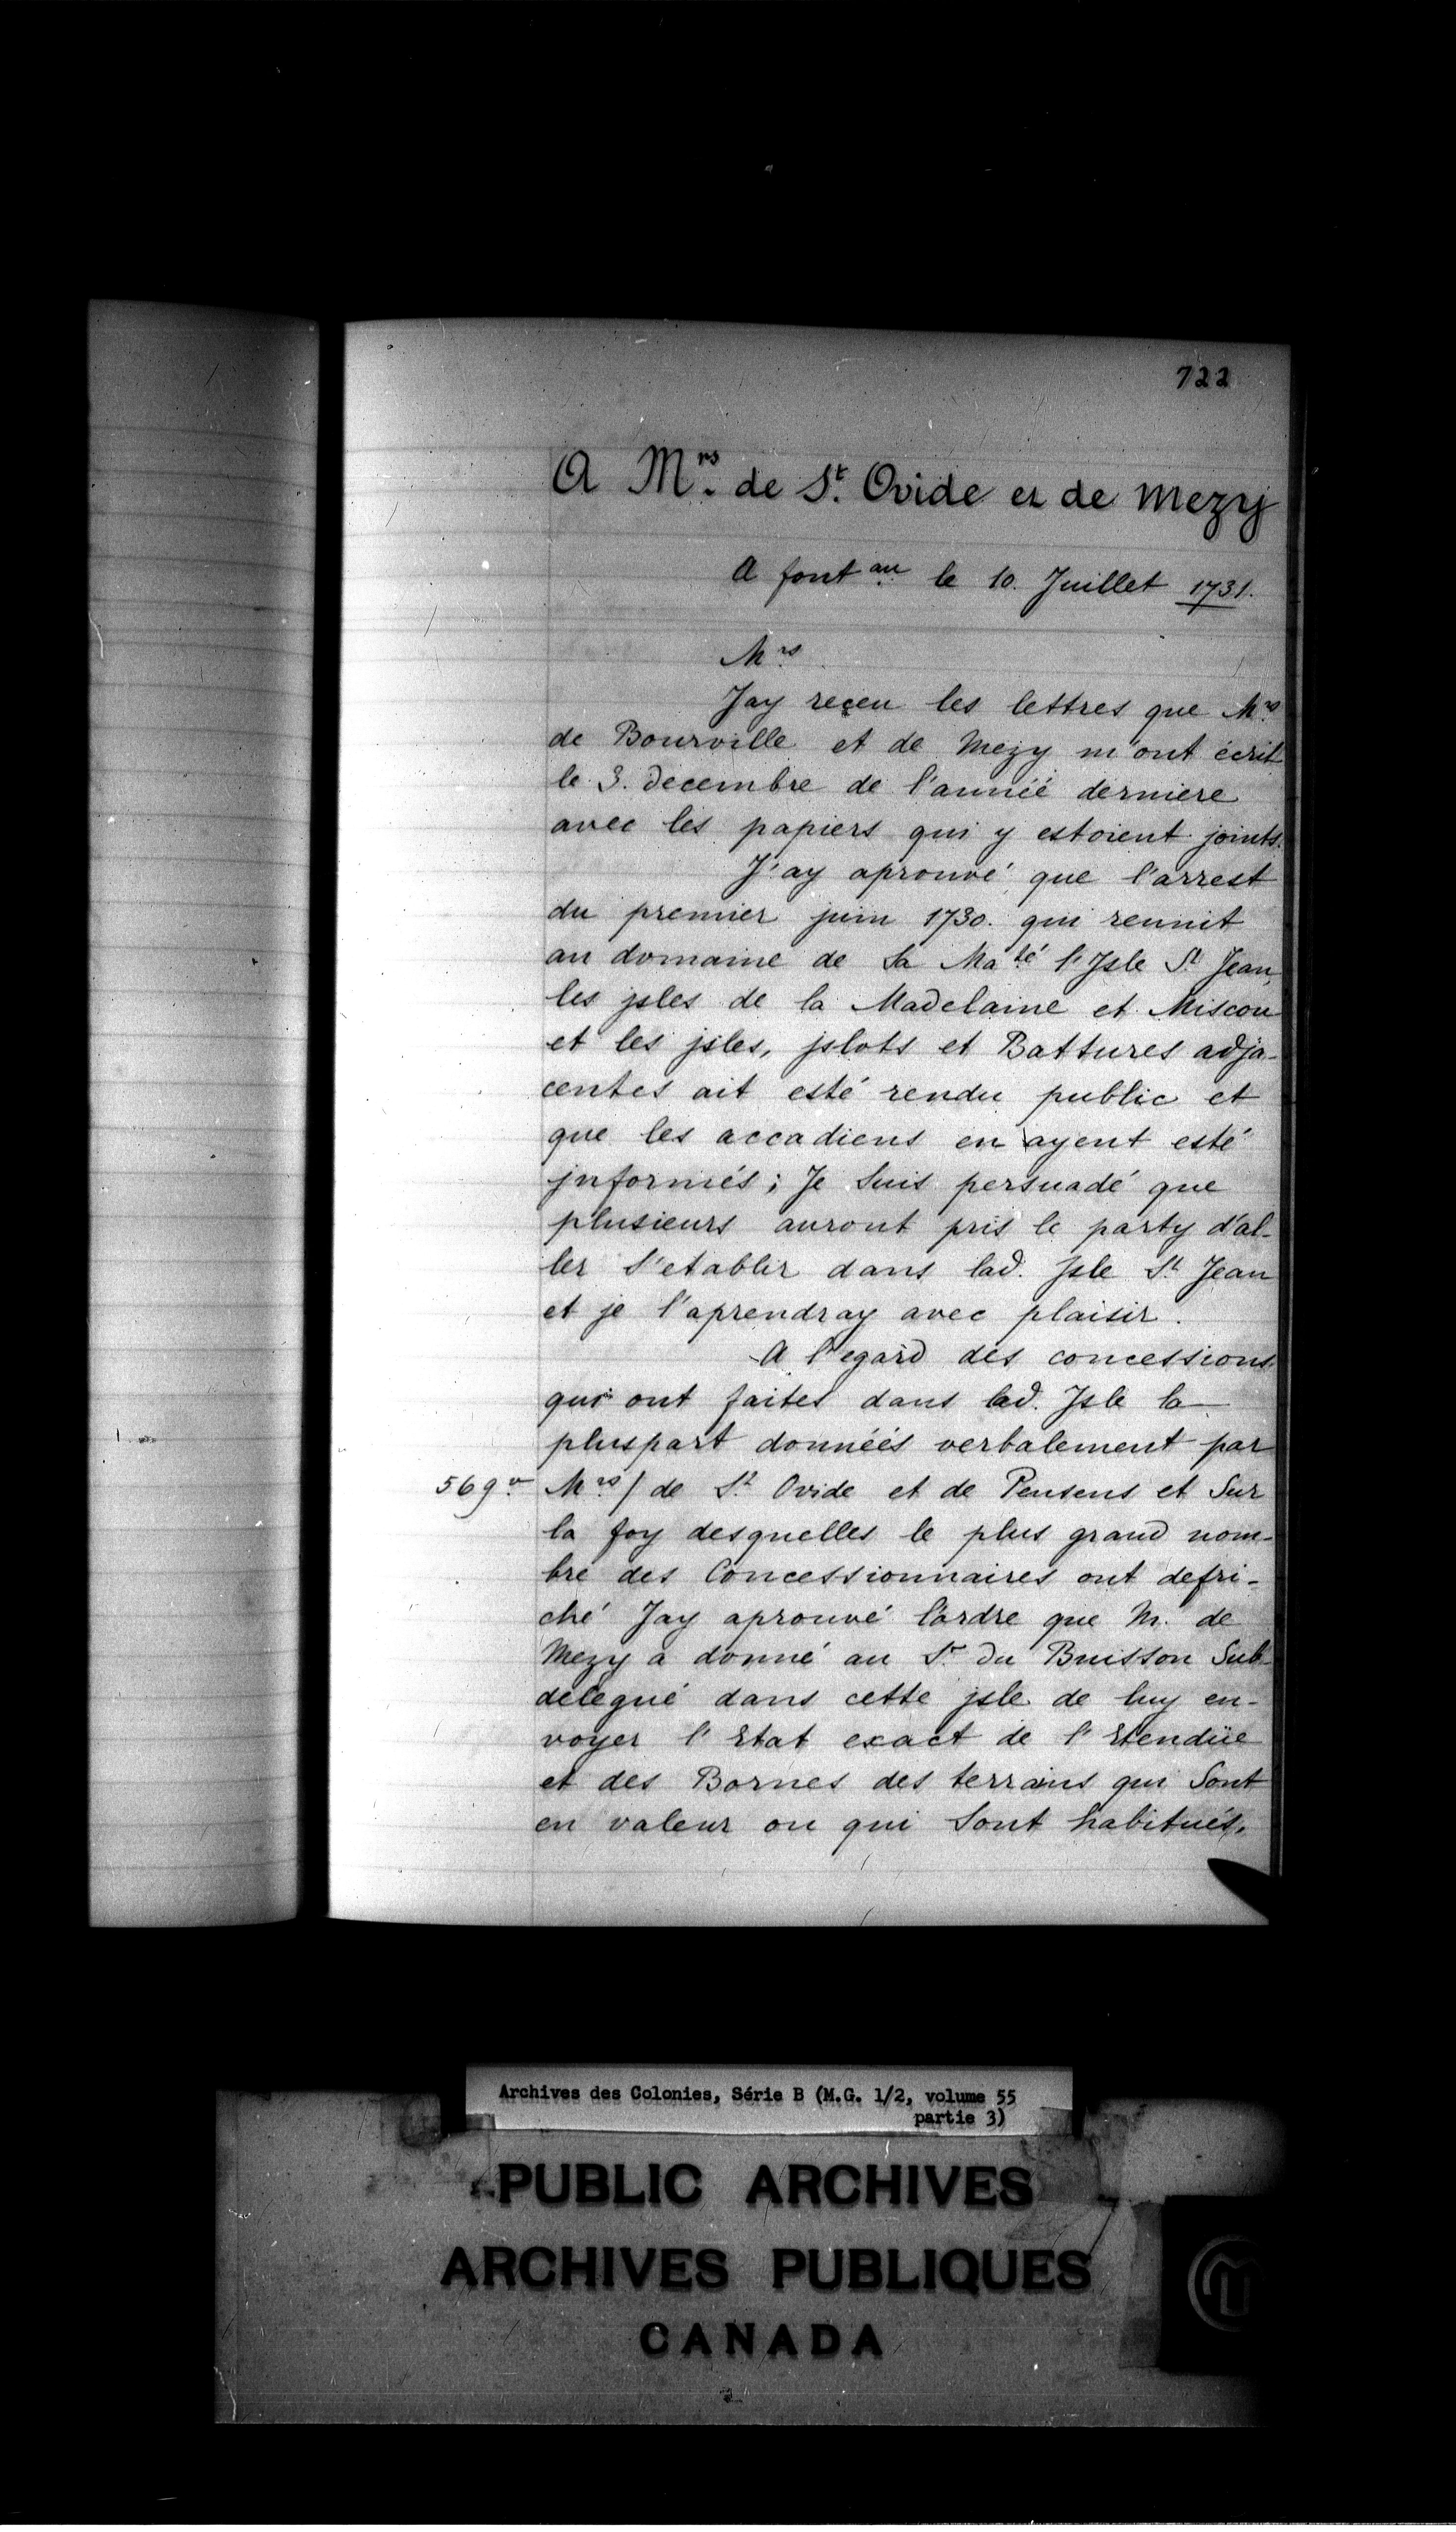 722
A Mrs. de St. Ovide et de Mezy
A fontau. le 10. Juillet 1731.
Mrs.
Jay reçeu les lettres que Mrs.
de Bourville et de Mezy m'ont écrit
le 3. decembre de l'année derniere
avec les papiers qui y estoient joints.
J'ay aprouvé que l'arrest
du premier juin 1730. qui reunit
au domaine de Sa Maté l'Isle St Jean,
les jsles de la Madelaine et Miscou
et les jsles, jslots et Battures adja-
centes ait esté rendu public et
que les accadiens en ayent esté
jnformés; Je Suis persuadé que
plusieurs auront pris le party d'al-
ler S'etablir dans lad. Jsle St Jean
et je l'aprendray avec plaisir.
A l'egard des concessions
qui ont faites dans lad. Jsle la
pluspart données verbalement par
569vo. Mrs./ de St Ovide et de Pensens et Sur
la foy desquelles le plus grand nom-
bre des Concessionnaires ont defri-
ché Jay aprouvé l'ordre que M. de
Mezy a donné au Sr. du Buisson Sub-
delegué dans cette jsle de luy en-
voyer l'Etat exact de l'Etendüe
et des Bornes des terrains qui Sont
en valeur ou qui Sont habitués.
Archives des Colonies, Série B (M.G. 1/2, volume 55
partie 3)
PUBLIC ARCHIVES
ARCHIVES PUBLIQUES
CANADA